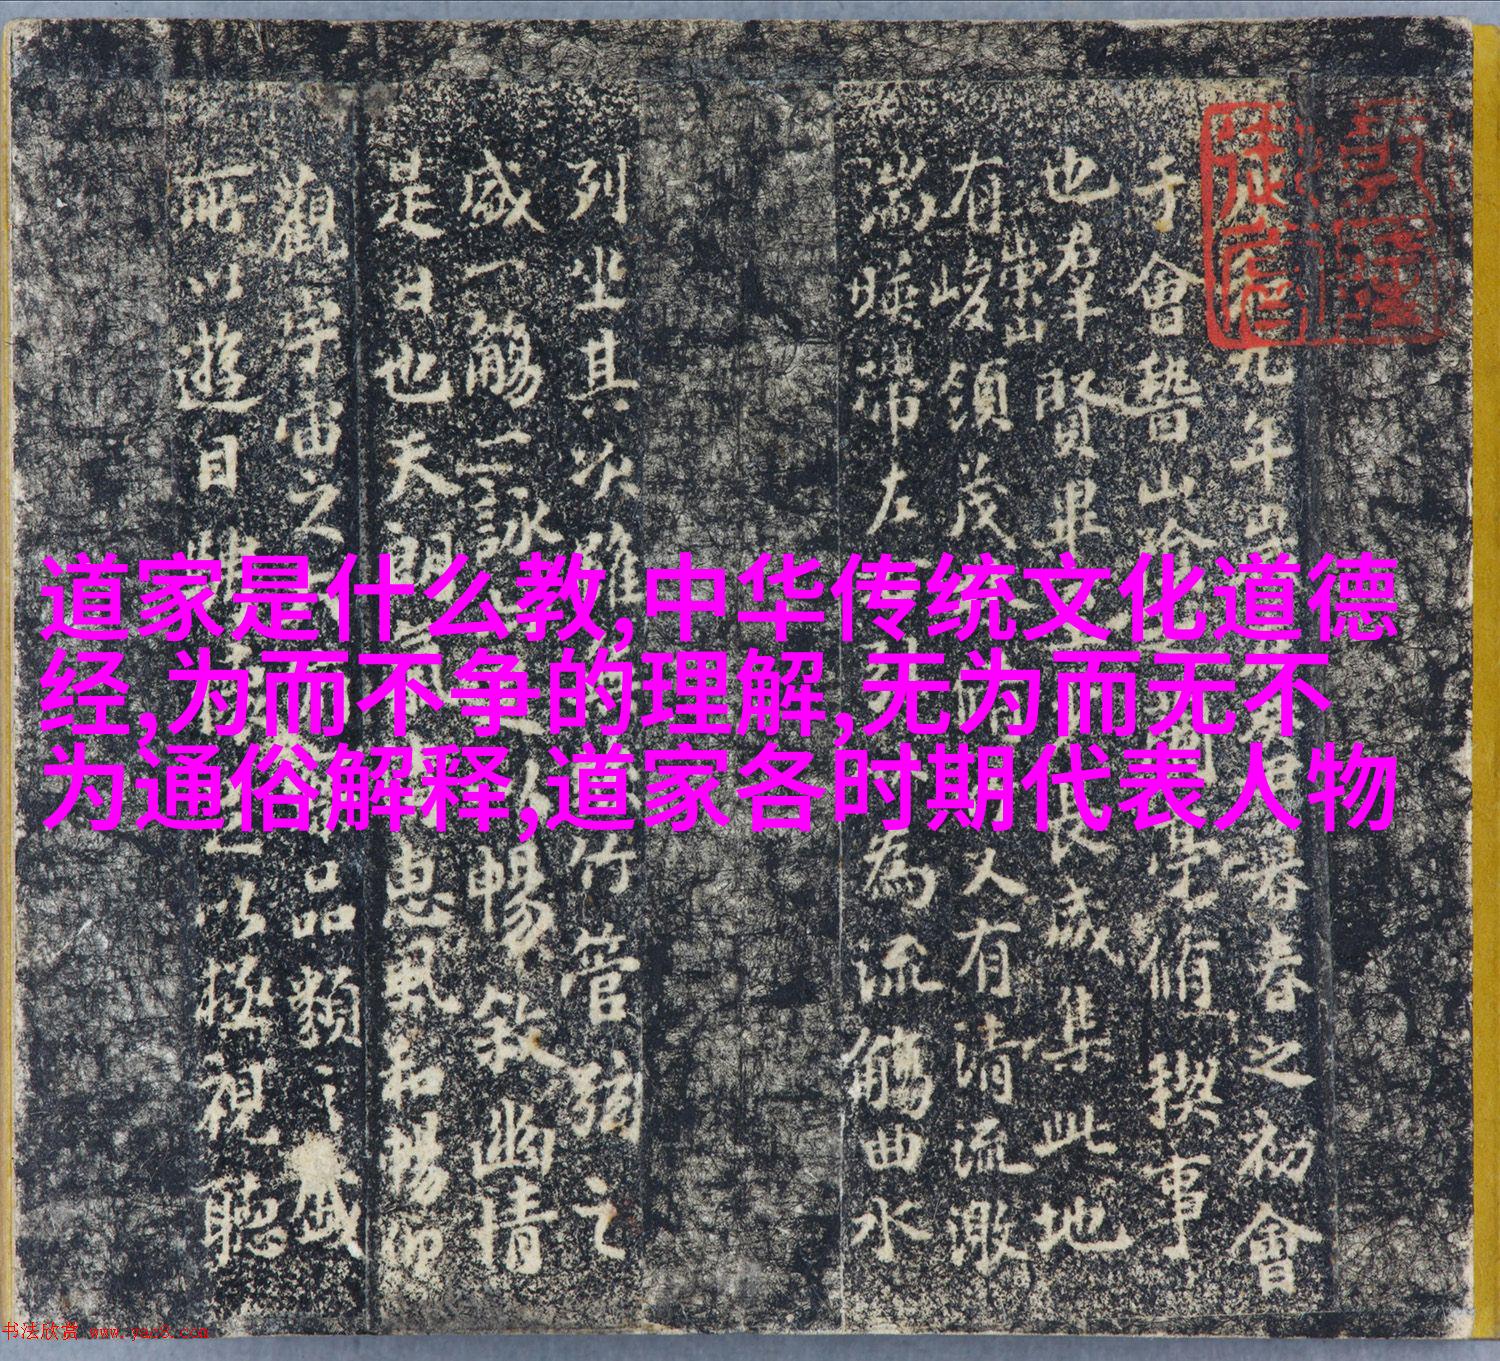 道家是什么教,中华传统文化道德
经,为而不争的理解,无为而无不
为通俗解释,道家各时期代表人物
九年暮春之初會
于會稽山陰亭脩禊事
也群賢畢長咸集此地
有崇山峻領茂又有清流激
湍暎帶左為流觴曲水
列坐其次雖竹管弦之
盛一觴一詠暢敘幽情
是日也天朗惠風和暢仰
觀宇宙之品類之盛
所以遊目騁以極視聽
书法欣赏 www.yac8.com